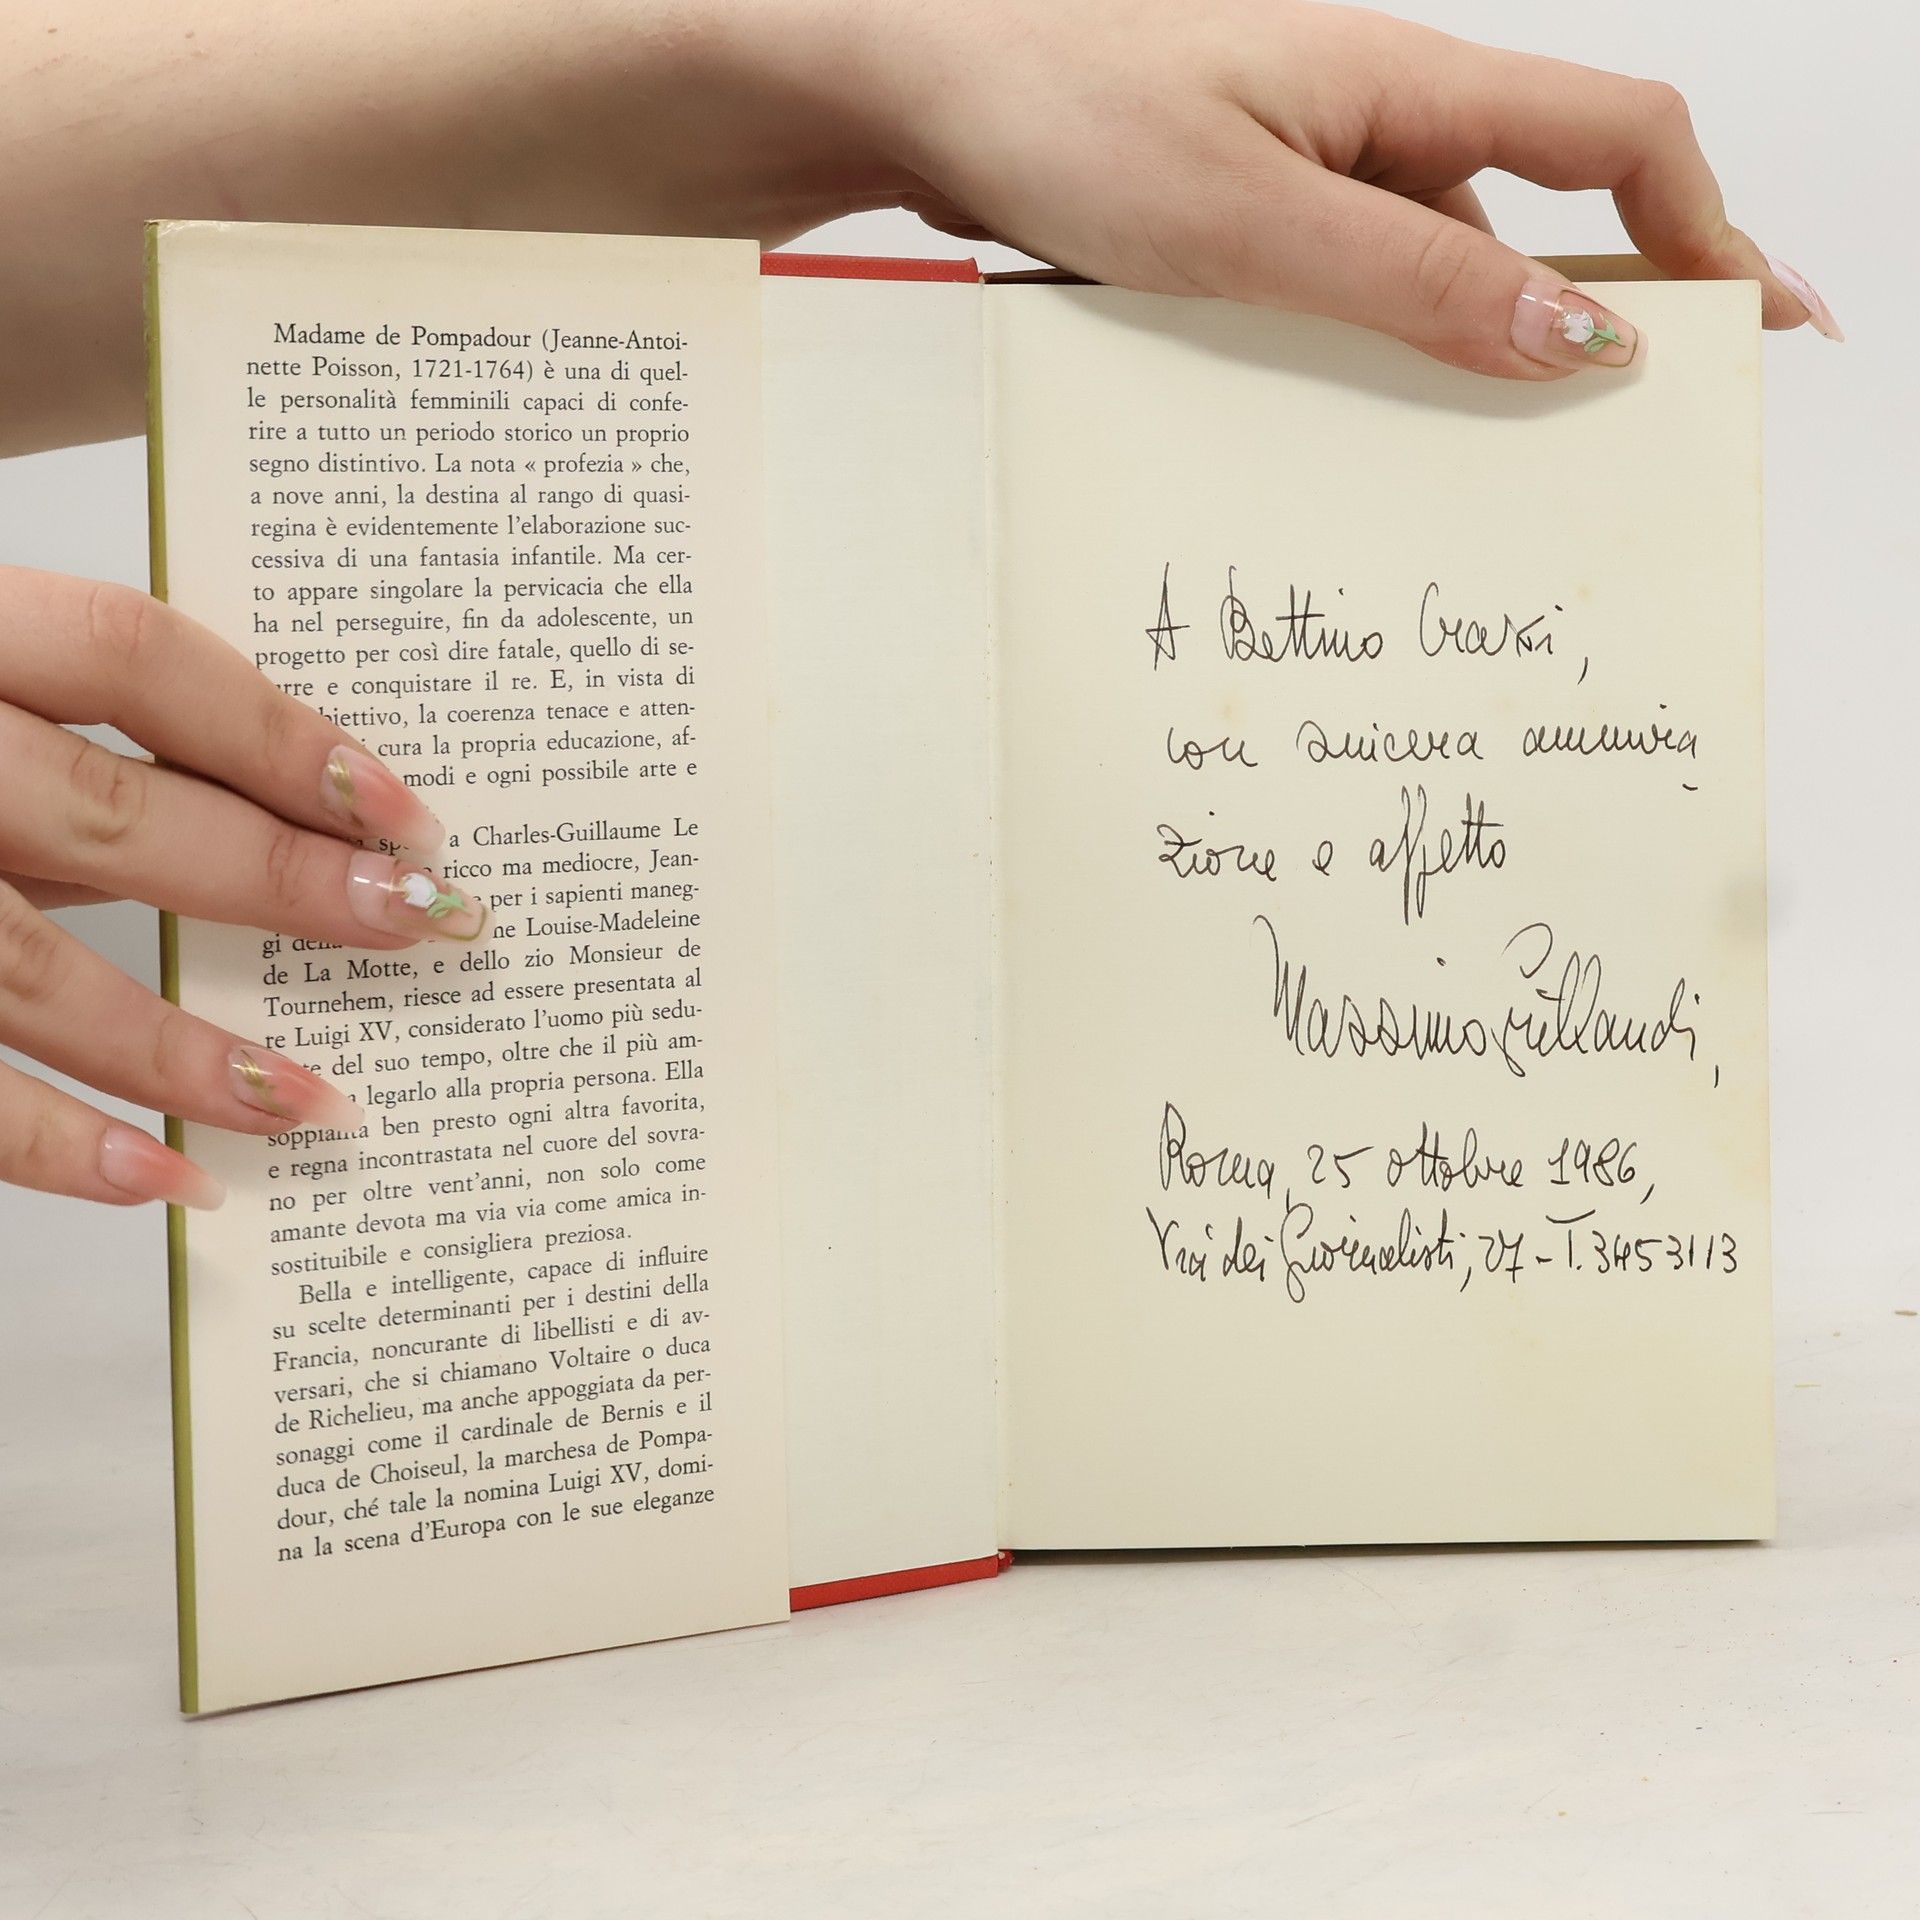 Madame de Pompadour (Jeanne-Antoi-
nette Poisson, 1721-1764) è una di quel-
le personalità femminili capaci di confe-
rire a tutto un periodo storico un proprio
segno distintivo. La nota « profezia » che,
a nove anni, la destina al rango di quasi-
regina è evidentemente l'elaborazione suc-
cessiva di una fantasia infantile. Ma cer-
to appare singolare la pervicacia che ella
ha nel perseguire, fin da adolescente, un
progetto per così dire fatale, quello di se-
e conquistare il re. E, in vista di
la coerenza tenace e atten-
cura la propria educazione, af-
modi e ogni possibile arte e
a Charles-Guillaume Le
ricco ma mediocre, Jean-
per i sapienti maneg-
gi Louise-Madeleine
de La Motte, e dello zio Monsieur de
Tournehem, riesce ad essere presentata al
re Luigi XV, considerato l'uomo più sedu-
del suo tempo, oltre che il più am-
legarlo alla propria persona. Ella
soppianta ben presto ogni altra favorita,
e regna incontrastata nel cuore del sovra-
no per oltre vent'anni, non solo come
amante devota ma via via come amica in-
sostituibile e consigliera preziosa.
Bella e intelligente, capace di influire
su scelte determinanti per i destini della
Francia, noncurante di libellisti e di av-
versari, che si chiamano Voltaire o duca
de Richelieu, ma anche appoggiata da per-
sonaggi come il cardinale de Bernis e il
duca de Choiseul, la marchesa de Pompa-
dour, ché tale la nomina Luigi XV, domi-
na la scena d'Europa con le sue eleganze
A Bettino Craxi,
con sincera ammira-
zione e affetto
Massimo Grillandi,
Roma, 25 ottobre 1986,
Via dei Giornalisti, 27 - T. 3453113